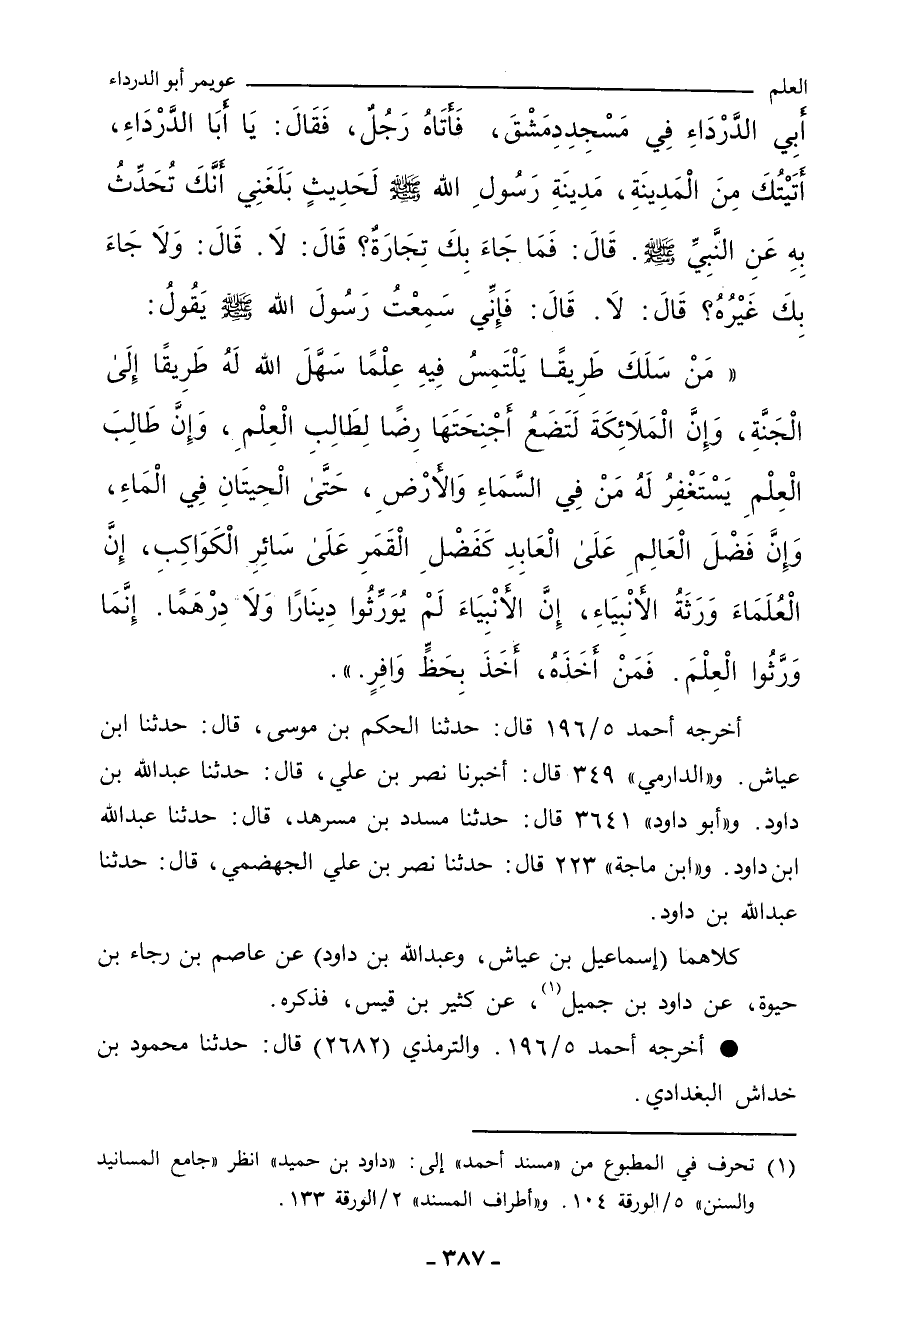 العلم ــــــــــــــــــــ عويمر أبو الدرداء
أَبِي الدَّرْدَاءِ فِي مَسْجِدِدِمَشْقَ، فَأَتَاهُ رَجُلٌ، فَقَالَ: يَا أَبَا الدَّرْدَاءِ،
أَتَيْتُكَ مِنَ الْمَدِينَةِ، مَدِينَةِ رَسُولِ الله ﷺ لَحَدِيثٍ بَلَغَنِي أَنَّكَ تُحَدِّثُ
بِهِ عَنِ النَّبِيِّ ﷺ. قَالَ: فَمَا جَاءَ بِكَ تِجَارَةٌ؟ قَالَ: لَا. قَالَ: وَلَا جَاءَ
بِكَ غَيْرُهُ؟ قَالَ: لَا. قَالَ: فَإِنِّي سَمِعْتُ رَسُولَ الله ﷺ يَقُولُ:
« مَنْ سَلَكَ طَرِيقًا يَلْتَمِسُ فِيهِ عِلْمًا سَهَّلَ الله لَهُ طَرِيقًا إِلَىٰ
الْجَنَّةِ، وَإِنَّ الْمَلَائِكَةَ لَتَضَعُ أَجْنِحَتَهَا رِضًا لِطَالِبِ الْعِلْمِ، وَإِنَّ طَالِبَ
الْعِلْمِ يَسْتَغْفِرُ لَهُ مَنْ فِي السَّمَاءِ وَالْأَرْضِ، حَتَّىٰ الْحِيتَانِ فِي الْمَاءِ،
وَإِنَّ فَضْلَ الْعَالِمِ عَلَىٰ الْعَابِدِ كَفَضْلِ الْقَمَرِ عَلَىٰ سَائِرِ الْكَوَاكِبِ، إِنَّ
الْعُلَمَاءَ وَرَثَةُ الأَنْبِيَاءِ، إِنَّ الأَنْبِيَاءَ لَمْ يُوَرِّثُوا دِينَارًا وَلَا دِرْهَمًا. إِنَّمَا
وَرَّثُوا الْعِلْمَ. فَمَنْ أَخَذَهُ، أَخَذَ بِحَظٍّ وَافِرٍ.».
أخرجه أحمد ١٩٦/٥ قال: حدثنا الحكم بن موسى، قال: حدثنا ابن
عياش. و«الدارمي» ٣٤٩ قال: أخبرنا نصر بن علي، قال: حدثنا عبدالله بن
داود. و«أبو داود» ٣٦٤١ قال: حدثنا مسدد بن مسرهد، قال: حدثنا عبدالله
ابن داود. و«ابن ماجة» ٢٢٣ قال: حدثنا نصر بن علي الجهضمي، قال: حدثنا
عبدالله بن داود.
كلاهما (إسماعيل بن عياش، وعبدالله بن داود) عن عاصم بن رجاء بن
حيوة، عن داود بن جميل(١)، عن كثير بن قيس، فذكره.
● أخرجه أحمد ١٩٦/٥. والترمذي (٢٦٨٢) قال: حدثنا محمود بن
خداش البغدادي.
(١) تحرف في المطبوع من «مسند أحمد» إلى: «داود بن حميد» انظر «جامع المسانيد
والسنن» ٥/الورقة ١٠٤. و«أطراف المسند» ٢/الورقة ١٣٣.
- ٣٨٧ -